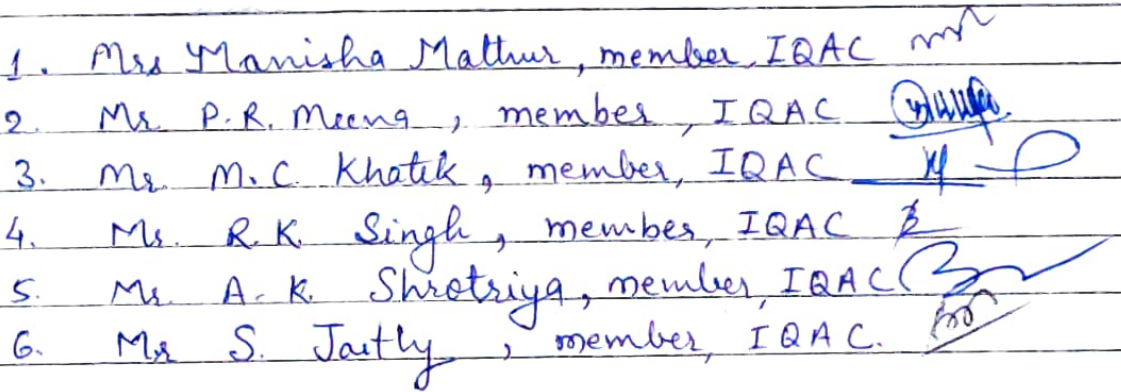 1. Mrs Manisha Mathur, member, IQAC
2. Mr P.R. Meena, member, IQAC
3. Mr. M.C. Khatik, member, IQAC
4. Mr. R.K. Singh, member, IQAC
5. Mr. A.K. Shrotriya, member, IQAC
6. Mr S. Jaitly, member, IQAC.